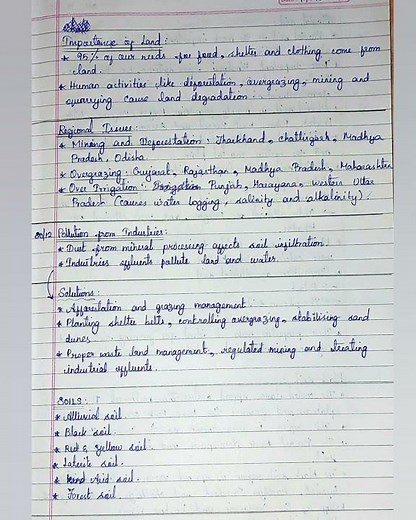 Importance of Land:
* 95% of our needs for food, shelter and clothing come from
land.
* Human activities like deforestation, overgrazing, mining and
quarrying cause land degradation.
Regional Issues:
* Mining and Deforestation: Jharkhand, chattisgarh, Madhya
Pradesh, Odisha
* Overgrazing: Gujarat, Rajasthan, Madhya Pradesh, Maharashtra
* Over Irrigation: Punjab, Harayana, western Uttar
Pradesh (causes water logging, salinity and alkalinity).
Pollution from Industries:
* Dust from mineral processing affects soil infiltration.
* Industries effluents pollute land and water.
Solutions:
* Afforestation and grazing management
* Planting shelter belts, controlling overgrazing, stabilising sand
dunes
* Proper waste land management, regulated mining and treating
industrial effluents.
SOILS:
* Alluvial soil.
* Black soil.
* Red & yellow soil.
* Laterite soil.
* Arid soil.
* Forest soil